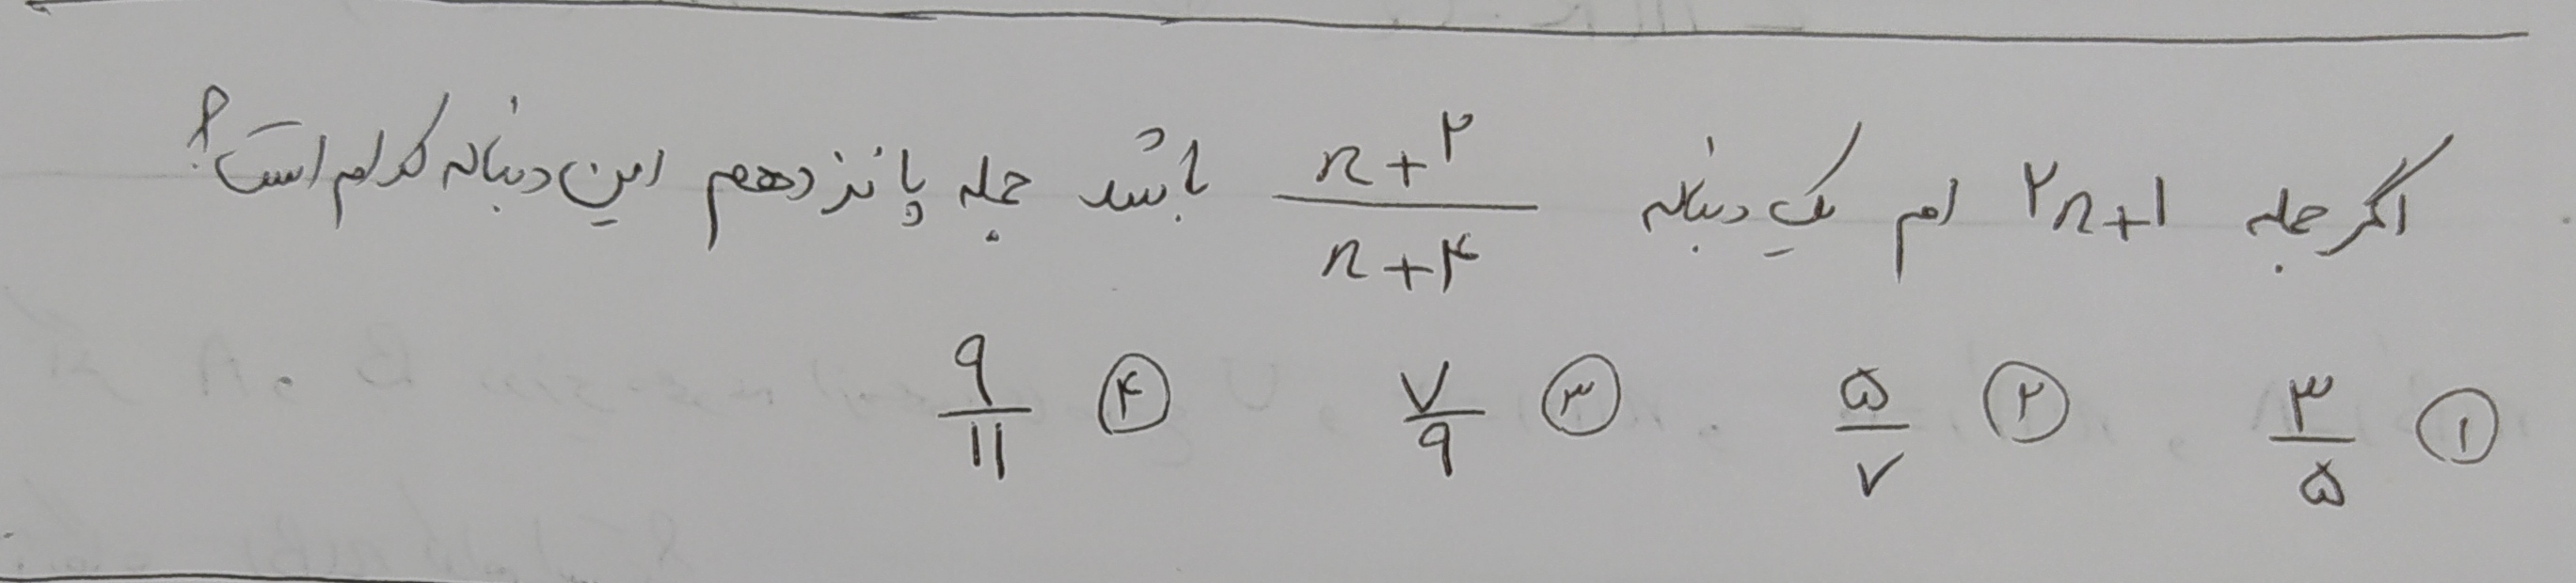 اگر جمله ۲n+1 ام یک دنباله (n+۲)/(n+۴) باشد جمله پانزدهم این دنباله کدام است؟
۱ ۳/۵ ۲ ۵/۷ ۳ ۷/۹ ۴ ۹/۱۱